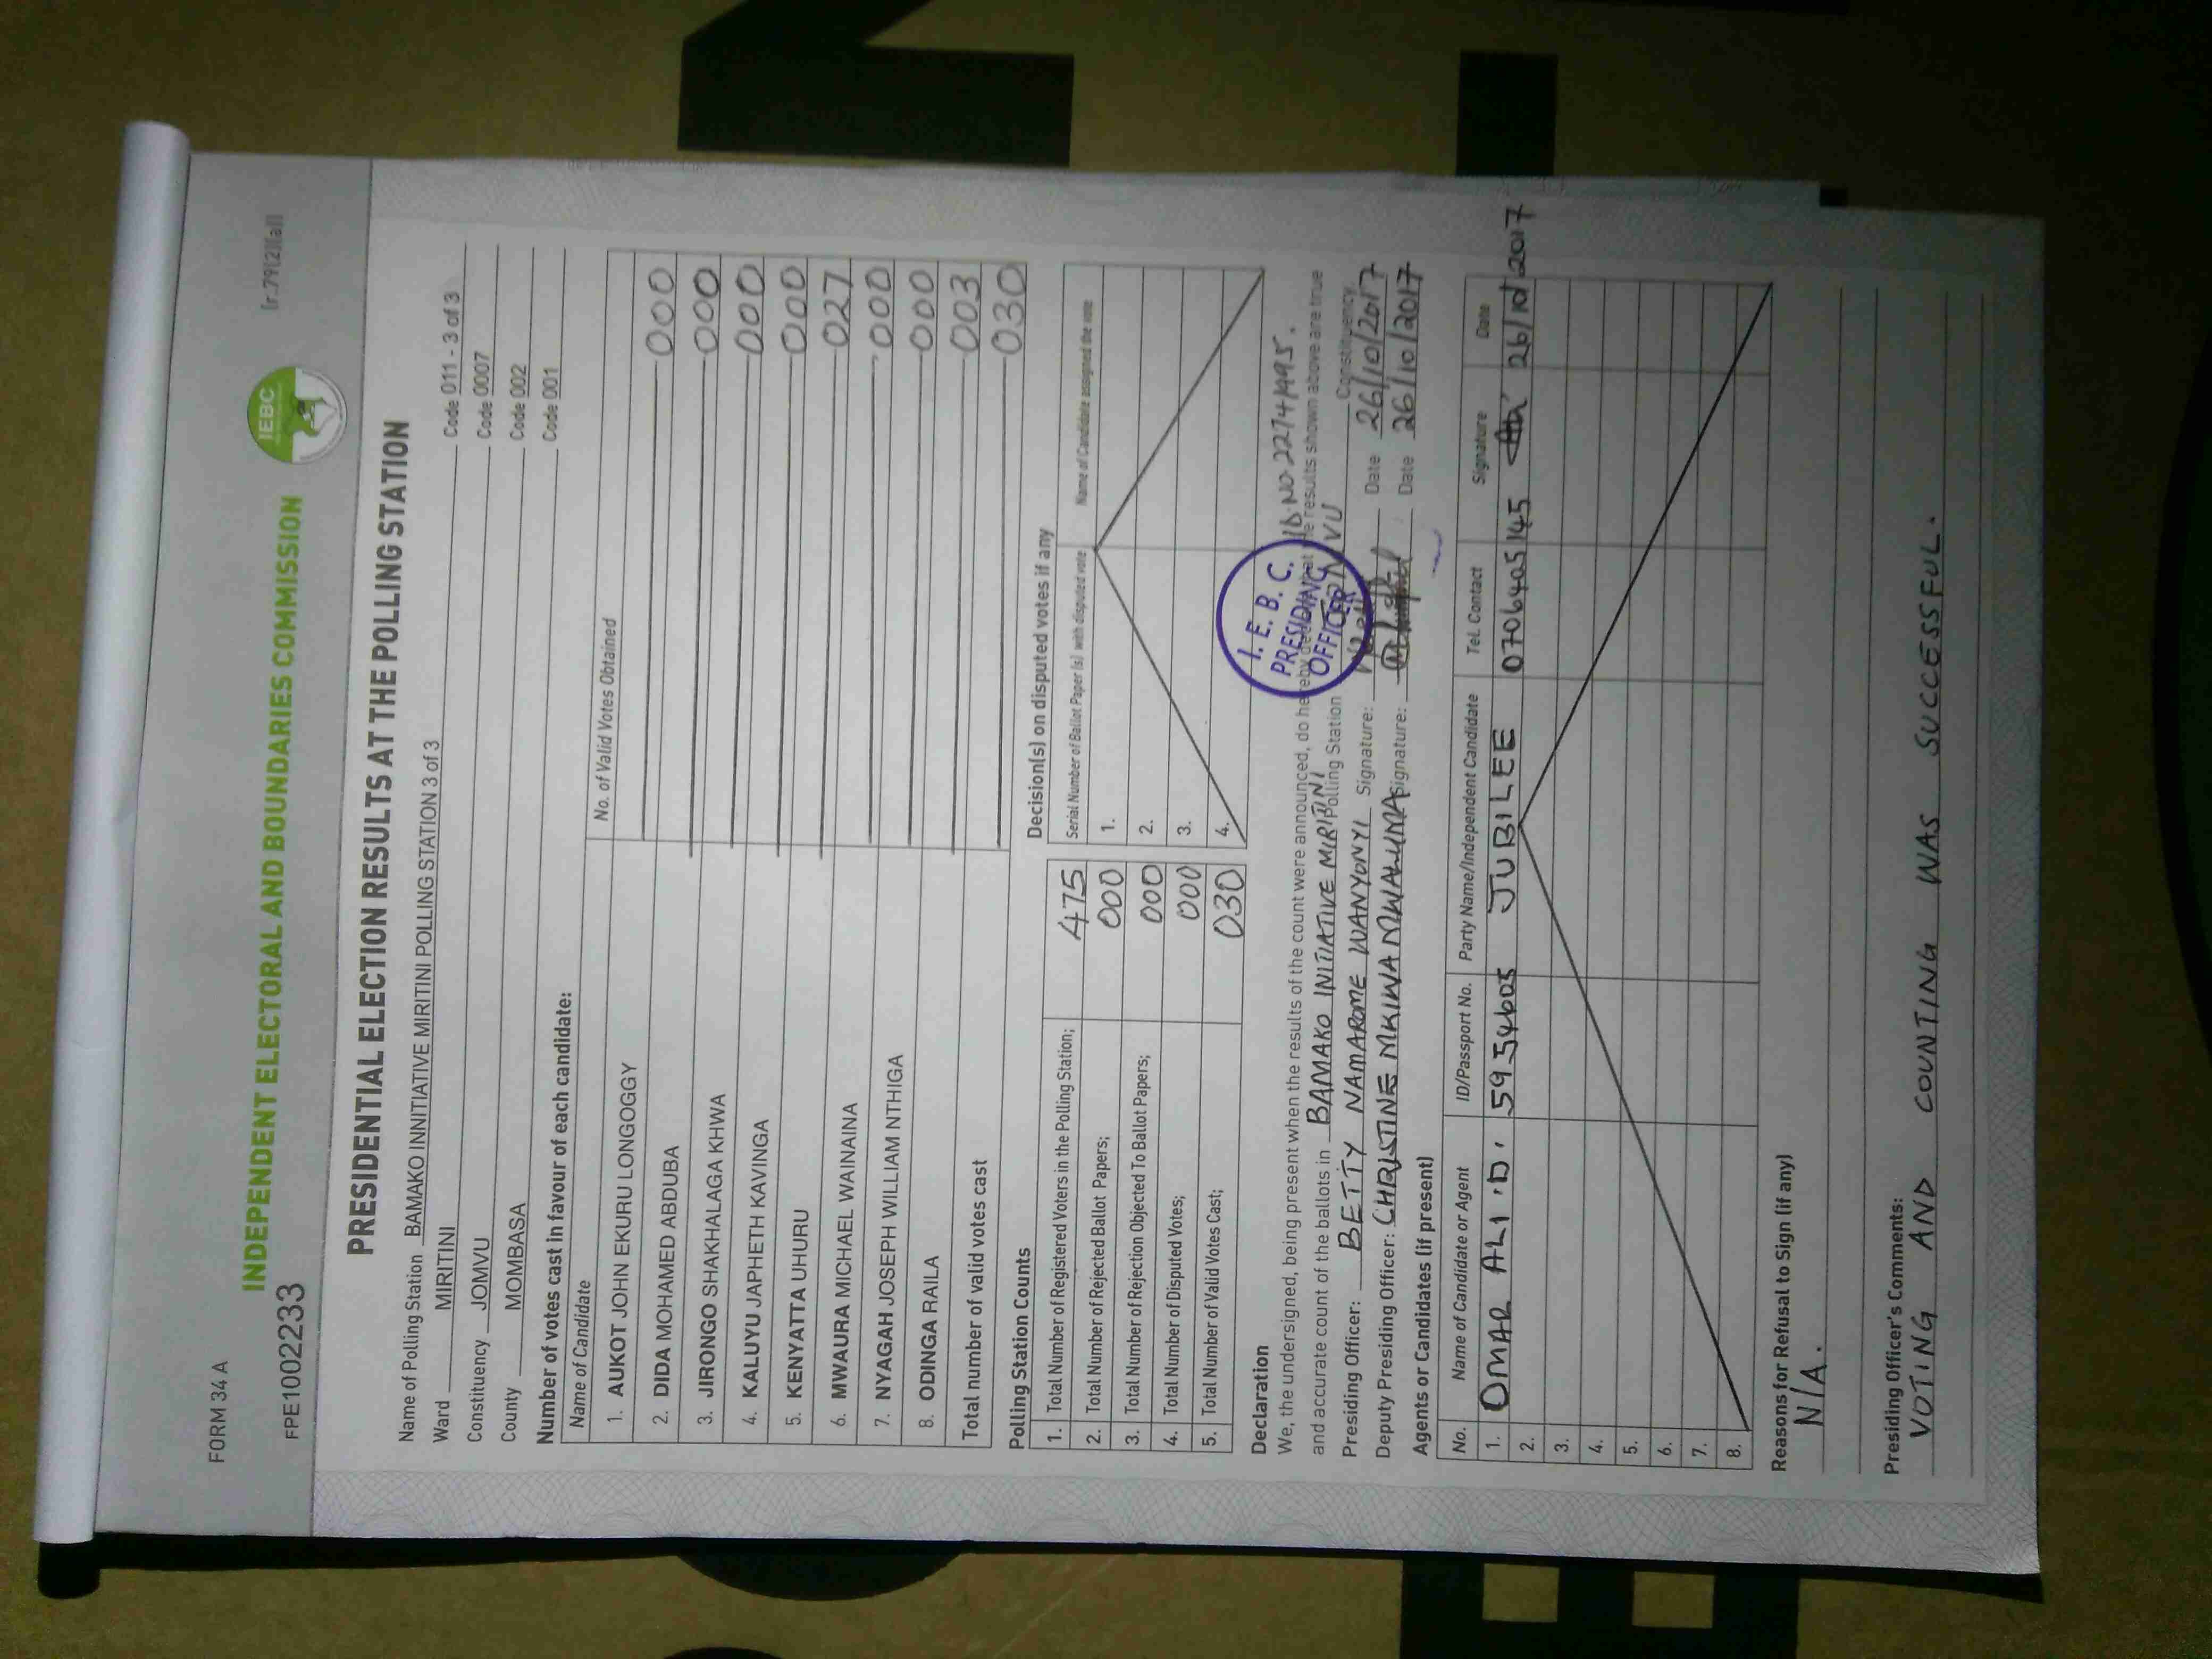 FORM 34 A
[r.79(2)(a)]
INDEPENDENT ELECTORAL AND BOUNDARIES COMMISSION
IEBC
FPE1002233
PRESIDENTIAL ELECTION RESULTS AT THE POLLING STATION
Name of Polling Station BAMAKO INNITIATIVE MIRITINI POLLING STATION 3 of 3 Code 011 - 3 of 3
Ward MIRITINI Code 0007
Constituency JOMVU Code 002
County MOMBASA Code 001
Number of votes cast in favour of each candidate:
Name of Candidate No. of Valid Votes Obtained
1. AUKOT JOHN EKURU LONGOGGY 000
2. DIDA MOHAMED ABDUBA 000
3. JIRONGO SHAKHALAGA KHWA 000
4. KALUYU JAPHETH KAVINGA 000
5. KENYATTA UHURU 027
6. MWAURA MICHAEL WAINAINA 000
7. NYAGAH JOSEPH WILLIAM NTHIGA 000
8. ODINGA RAILA 003
Total number of valid votes cast 030
Polling Station Counts
1. Total Number of Registered Voters in the Polling Station; 475
2. Total Number of Rejected Ballot Papers; 000
3. Total Number of Rejection Objected To Ballot Papers; 000
4. Total Number of Disputed Votes; 000
5. Total Number of Valid Votes Cast; 030
Decision(s) on disputed votes if any
Serial Number of Ballot Paper (s) with disputed vote Name of Candidate assigned the vote
1.
2.
3.
4.
Declaration
ID.NO.22741495.
We, the undersigned, being present when the results of the count were announced, do hereby declare that the results shown above are true
and accurate count of the ballots in BAMAKO INITIATIVE MIRITINI Polling Station JOMVU Constituency.
I. E. B. C.
PRESIDING
OFFICER
Presiding Officer: BETTY NAMAROME WANYONYI Signature: Date 26/10/2017
Deputy Presiding Officer: CHRISTINE MKIWA MWALUMA Signature: Date 26/10/2017
Agents or Candidates (if present)
No. Name of Candidate or Agent ID/Passport No. Party Name/Independent Candidate Tel. Contact Signature Date
1. OMAR ALI D. 59354605 JUBILEE 0706405145 26/10/2017
2.
3.
4.
5.
6.
7.
8.
Reasons for Refusal to Sign (if any)
N/A.
Presiding Officer's Comments:
VOTING AND COUNTING WAS SUCCESSFUL.